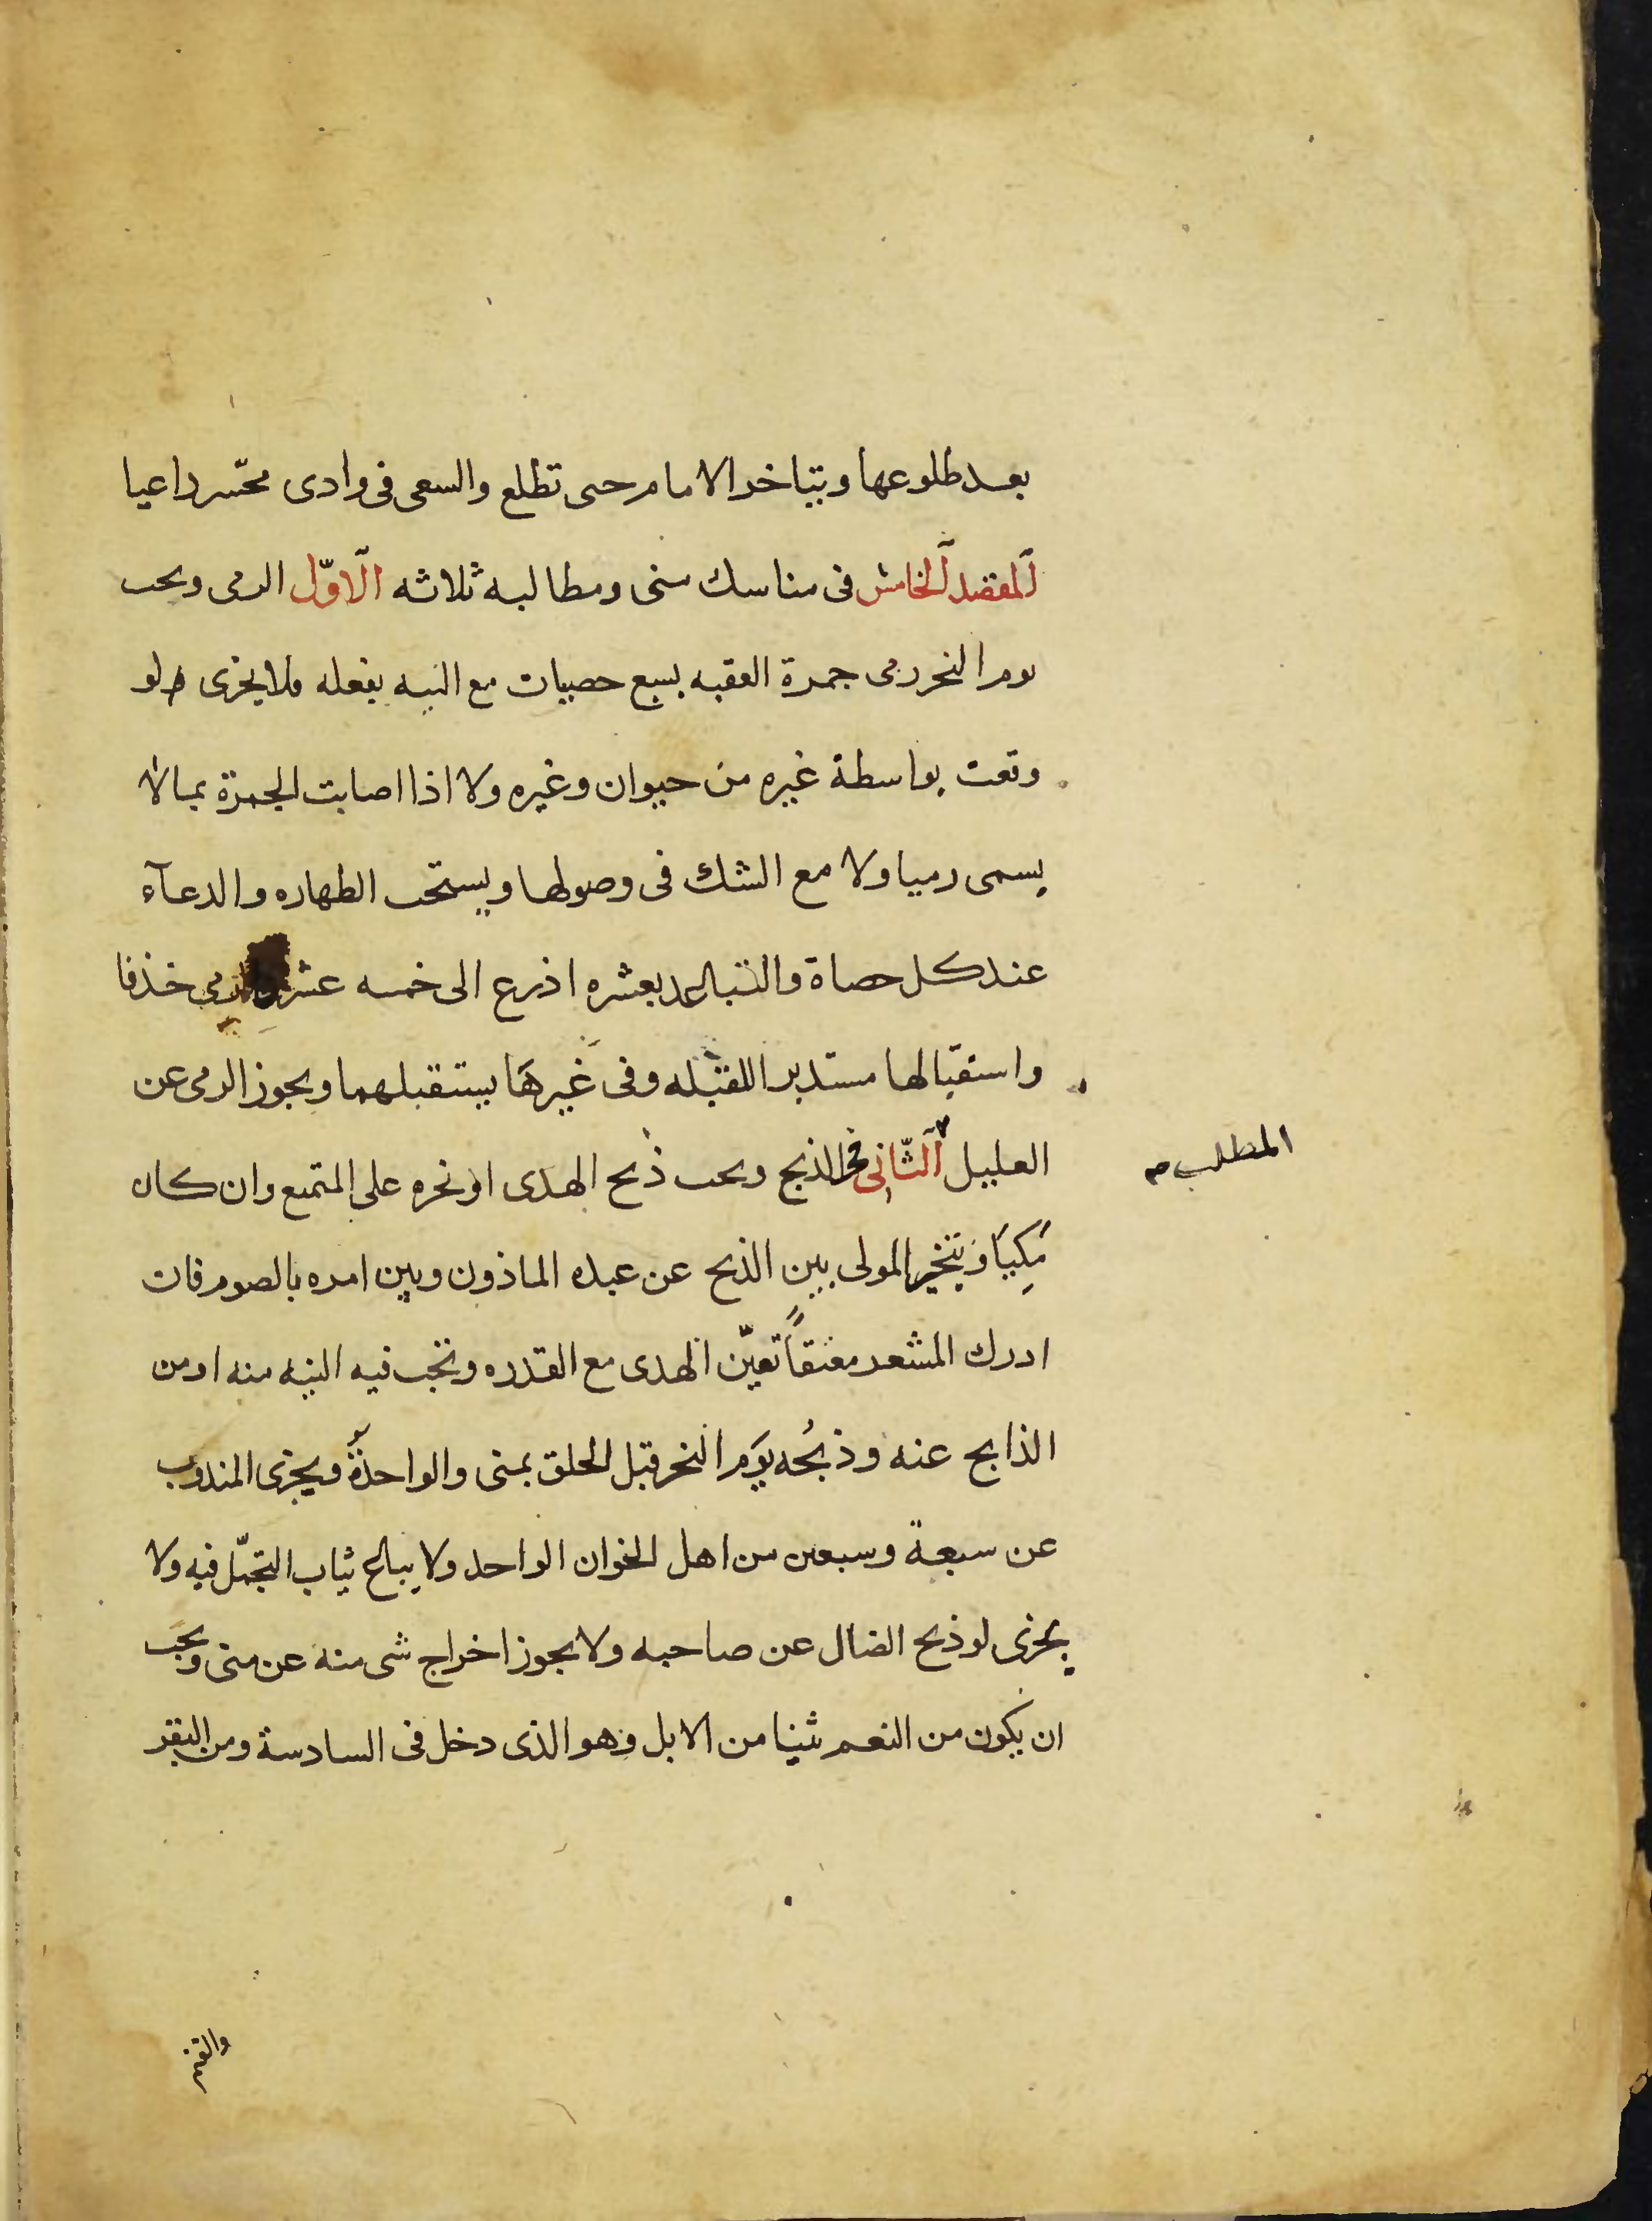 بعد طلوعها ويتاخر الامام حتى تطلع والسعى فى وادى محسّر داعيا
المقصد الخامس فى مناسك منى ومطالبه ثلاثه الاوّل الرمى ويجب
يوم النحر رمى جمرة العقبه بسبع حصيات مع النيه بفعله فلا يجزى لو
وقعت بواسطة غيره من حيوان وغيره ولا اذا اصابت الجمرة بما لا
يسمى رميا ولا مع الشك فى وصولها ويستحب الطهاره والدعآء
عند كل حصاة والتباعد بعشره اذرع الى خمسه عشر والرمى خذفا
واستقبالها مستدبرا للقبله وفى غيرها يستقبلهما ويجوز الرمى عن
العليل الثّانى فى الذبح ويجب ذبح الهدى او نحره على المتمتع وان كان
المطلب
مَكِيّاً ويتخير المولى بين الذبح عن عبده الماذون وبين امره بالصوم فان
ادرك المشعر معتقاً تعيّن الهدى مع القدره وتجب فيه النيه منه او من
الذابح عنه وذبحُه يوم النحر قبل الحلق بمنى والواحدة ويجزى المندوب
عن سبعة وسبعين من اهل الخوان الواحد ولا يباع ثياب التجمّل فيه ولا
يجزى لو ذبح الضال عن صاحبه ولا يجوز اخراج شى منه عن منى ويجب
ان يكون من النعم ثنيا من الابل وهو الذى دخل فى السادسة ومن البقر
والغنم